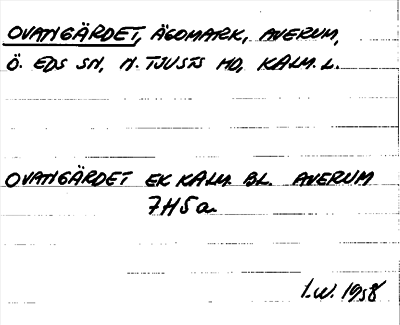 OVANGÄRDET, ÄGOMARK, AVERUM,
Ö. EDS SN, N. TJUSTS HD, KALM. L.
OVANGÄRDET EK KALM. BL. AVERUM
7H5a
I.W. 1958